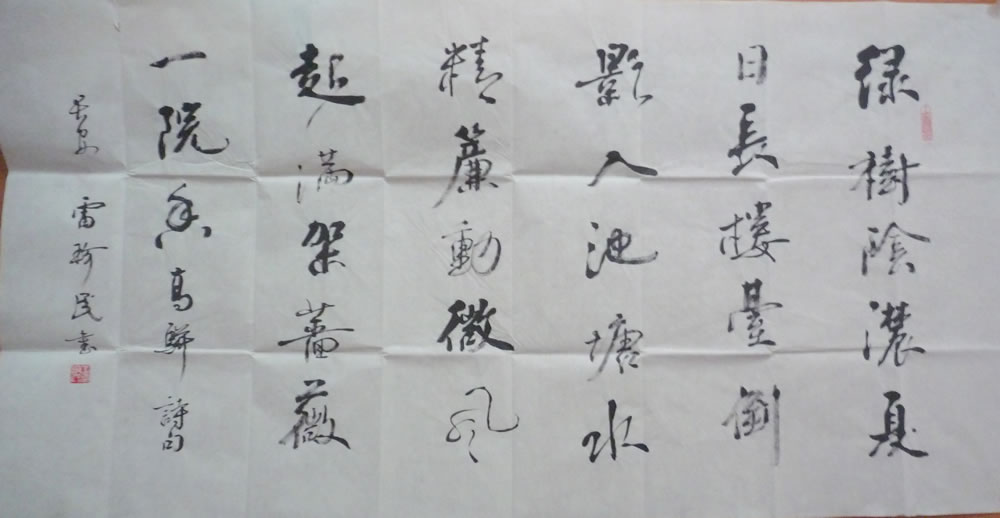 绿樹陰濃夏
日長樓臺倒
影入池塘水
精簾動微風
起滿架薔薇
一院香高駢詩句
雷珍民書